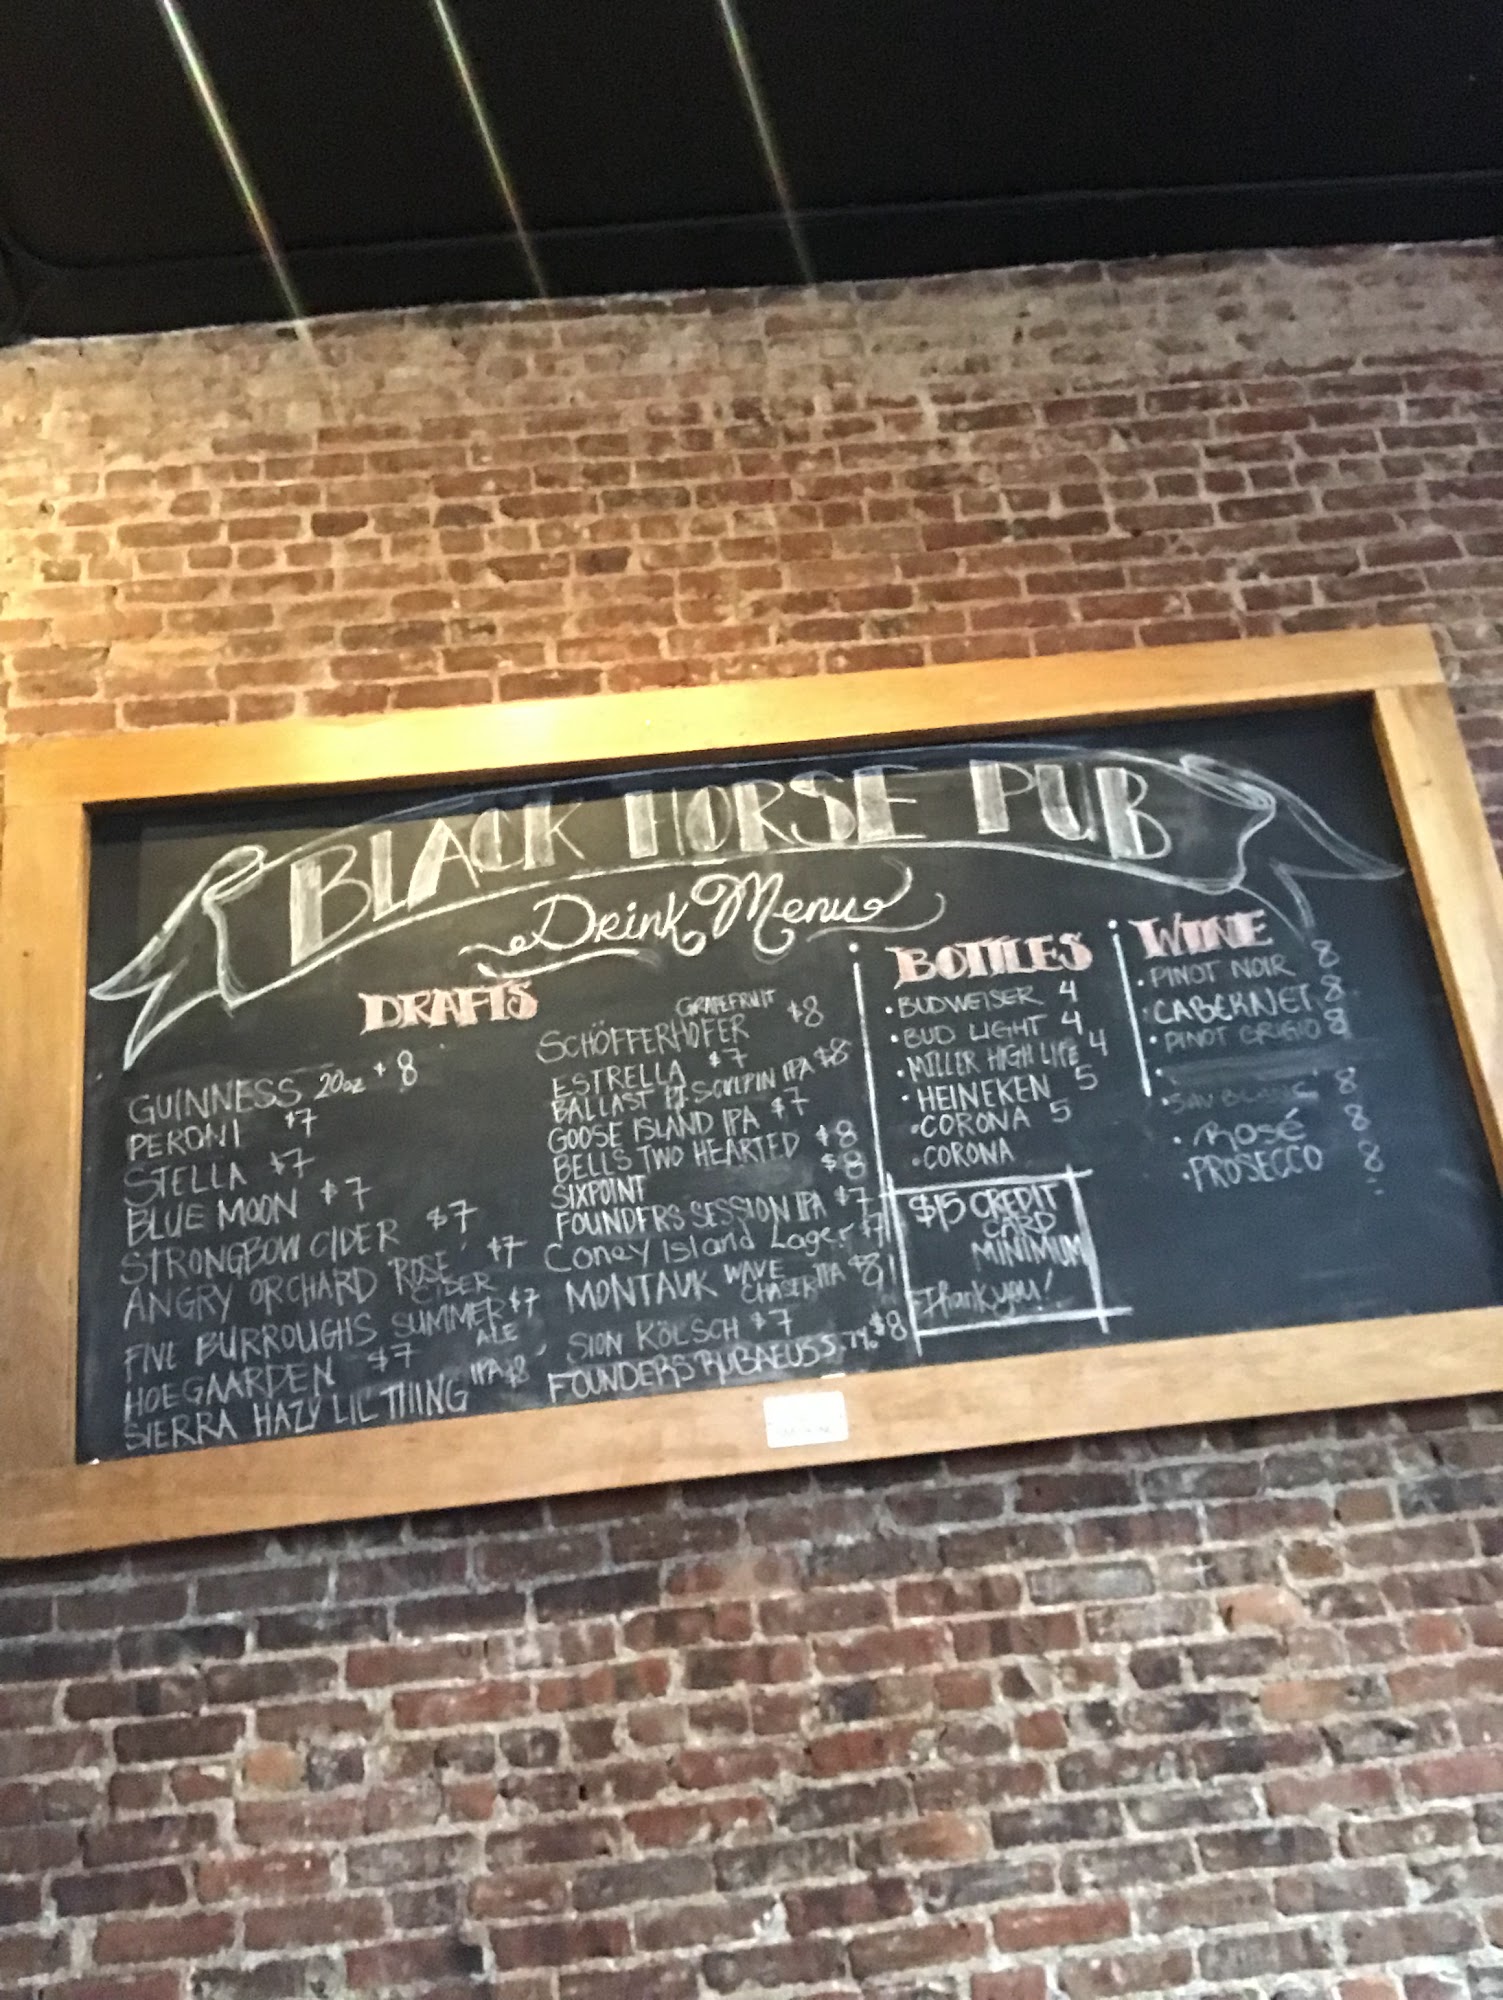 BLACK HORSE PUB
Drink Menu
DRAFTS
GUINNESS 20oz $8
PERONI $7
STELLA $7
BLUE MOON $7
STRONGBOW CIDER $7
ANGRY ORCHARD ROSE CIDER $7
FIVE BURROUGHS SUMMER ALE $7
HOEGAARDEN $7
SIERRA HAZY LIL' THING IPA $8
SCHÖFFERHOFER GRAPEFRUIT $8
ESTRELLA $7
BALLAST PT SCULPIN IPA $8
GOOSE ISLAND IPA $7
BELLS TWO HEARTED $8
SIXPOINT $8
FOUNDERS SESSION IPA $7
Coney Island Lager $7
MONTAUK WAVE CHASER IPA $8
SION KÖLSCH $7
FOUNDERS RUBAEUS 5.7% $8
BOTTLES
• BUDWEISER 4
• BUD LIGHT 4
• MILLER HIGH LIFE 4
• HEINEKEN 5
• CORONA 5
• CORONA
$15 CREDIT
CARD
MINIMUM
Thank you!
WINE
• PINOT NOIR 8
• CABERNET 8
• PINOT GRIGIO 8
• SAV BLANC 8
• Rosé 8
• PROSECCO 8